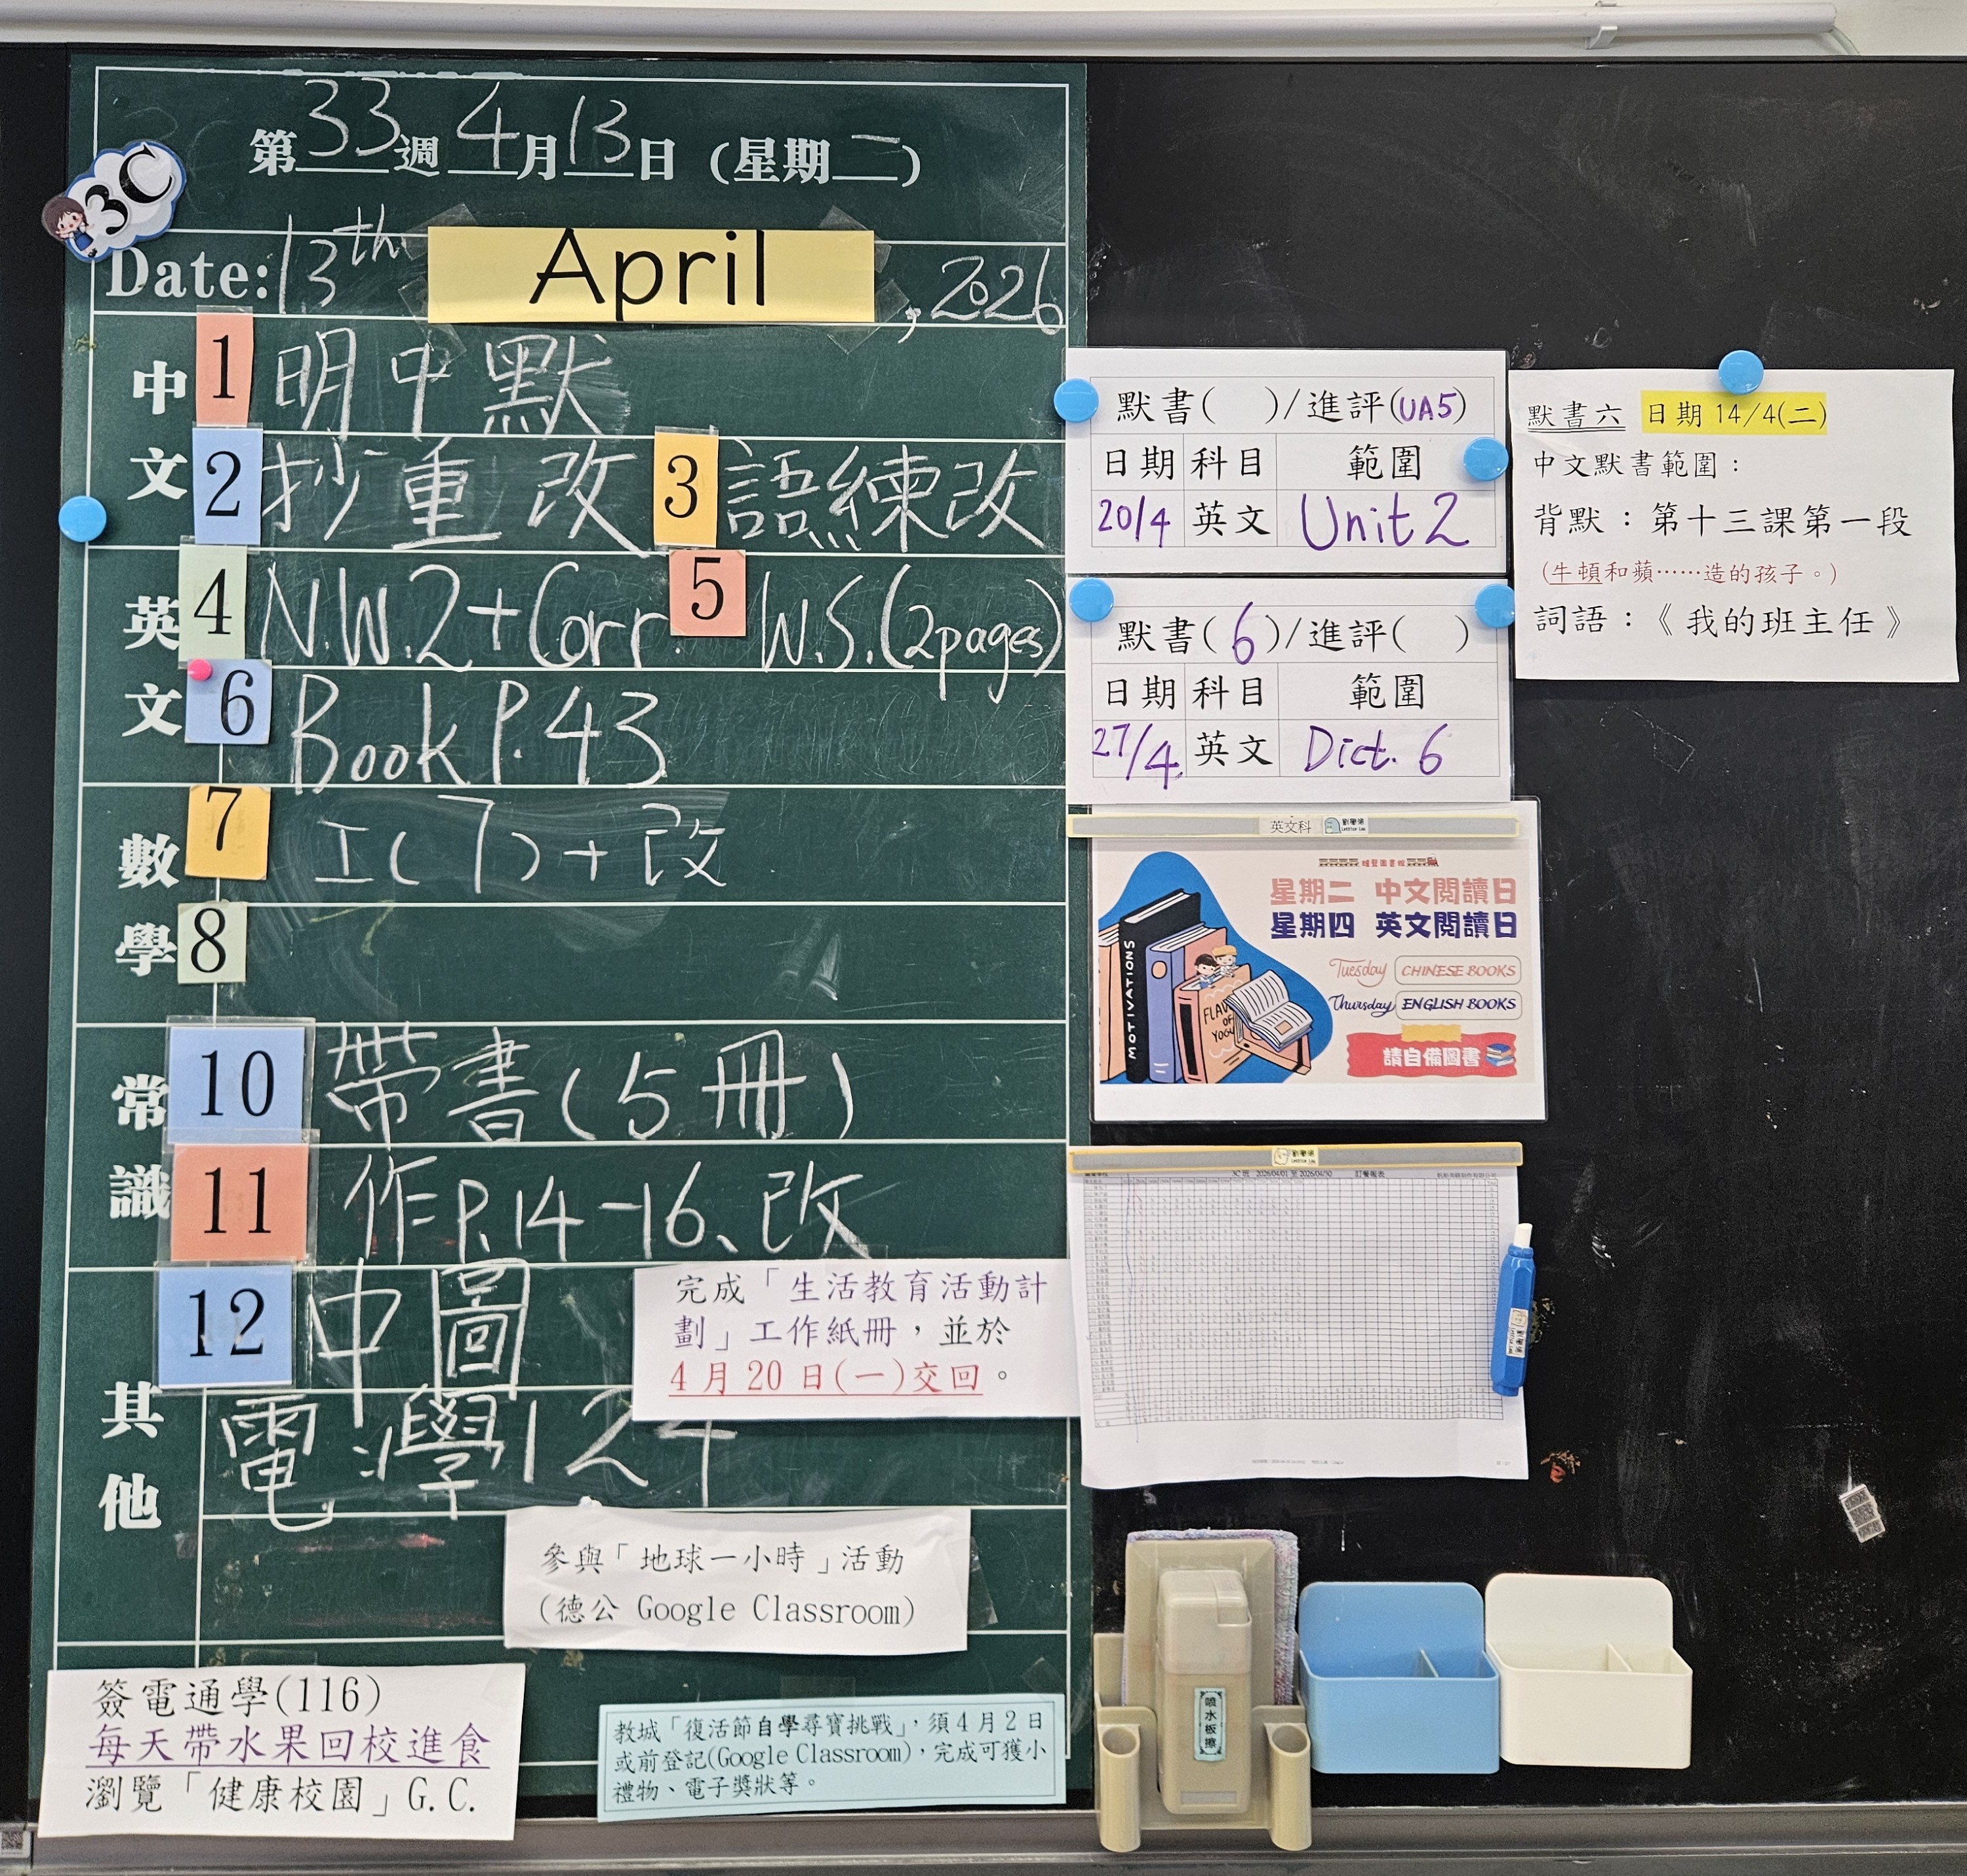 第33週 4月13日 (星期二)
3C
Date: 13th April, 2026
中文
1 明中默
2 抄重改 3 語練改
英文
4 N.W.2+Corr. 5 W.S.(2pages)
6 Book P.43
數學
7 工(7)+改
8
常識
10 帶書(5冊)
11 作P.14-16、改
其他
12 中圖
電學124
完成「生活教育活動計
劃」工作紙冊，並於
4月20日(一)交回。
參與「地球一小時」活動
(德公 Google Classroom)
簽電通學(116)
每天帶水果回校進食
瀏覽「健康校園」G.C.
教城「復活節自學尋寶挑戰」，須4月2日
或前登記(Google Classroom)，完成可獲小
禮物、電子獎狀等。
默書( )/進評(UA5)
日期 科目 範圍
20/4 英文 Unit 2
默書(6)/進評( )
日期 科目 範圍
27/4 英文 Dict. 6
默書六 日期14/4(二)
中文默書範圍：
背默：第十三課第一段
(牛頓和蘋……造的孩子。)
詞語：《我的班主任》
英文科
星期二 中文閱讀日
星期四 英文閱讀日
Tuesday CHINESE BOOKS
Thursday ENGLISH BOOKS
請自備圖書
MOTIVATIONS
3C 班 2026/04/01 至 2026/04/30 訂餐報表
噴水板擦